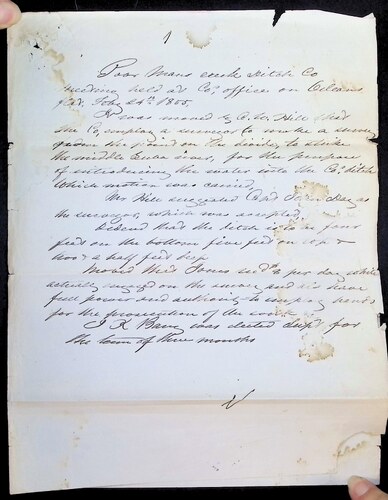 1
Poor Mans creek Ditch Co
meeting held at Co, office on Orleans
flat, Feby 24th 1855.
It was moved by C. W. Hill that
the Co, employ a surveyor to make a survey
from the on the divide, to strike
the middle Yuba river, for the purpose
of introducing the water into the Co, ditch
Which motion was carried,
Mr Hill suggested Capt John Day as
the surveyor, which was accepted,
Decided that the ditch be four
feet on the bottom five feet on top &
two & a half feet deep
Moved that Jones per day while
actually engaged on the survey and have
full power and authority to employ hands
for the prosecution of the work
J. K. was elected Supt for
the term of three months